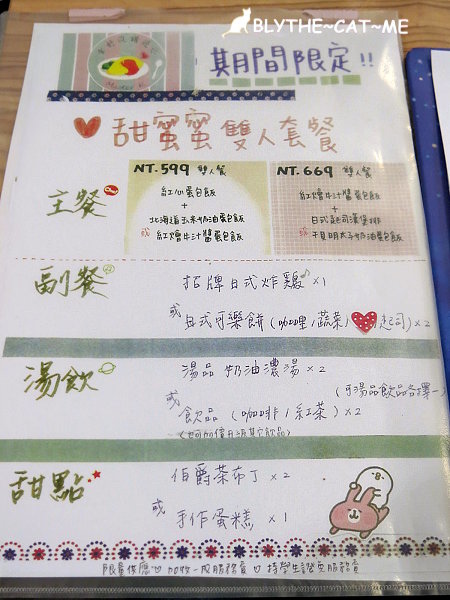 BLYTHE~CAT~ME
期間限定!!
甜蜜蜜雙人套餐
主餐
NT.599 雙人餐
紅心蛋包飯
+
北海道玉米奶油蛋包飯
或 紅燴牛汁醬蛋包飯
NT.669 雙人餐
紅燴牛汁醬蛋包飯
+
日式起司漢堡排
或 干貝明太子奶油蛋包飯
副餐
招牌日式炸雞 x1
或 日式可樂餅(咖哩/蔬菜/起司) x2
湯飲
湯品 奶油濃湯 x2
(可湯品飲品各擇一)
或 飲品 (咖啡/紅茶) x2
甜點
伯爵茶布丁 x2
或 手作蛋糕 x1
限量供應 加收一成服務費 持學生證免服務費